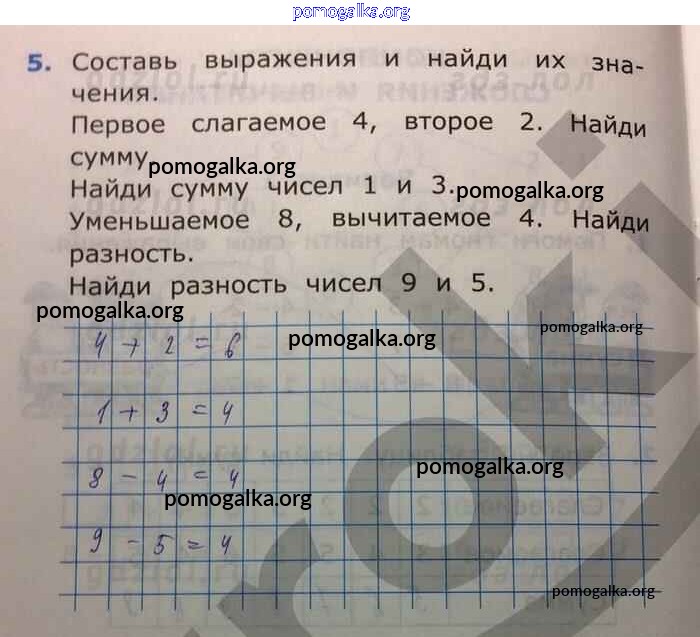 pomogalka.org
5. Составь выражения и найди их зна-
чения.
Первое слагаемое 4, второе 2. Найди
сумму.
pomogalka.org
Найди сумму чисел 1 и 3.
pomogalka.org
Уменьшаемое 8, вычитаемое 4. Найди
разность.
Найди разность чисел 9 и 5.
pomogalka.org
pomogalka.org
pomogalka.org
4 + 2 = 6
1 + 3 = 4
pomogalka.org
8 - 4 = 4
pomogalka.org
9 - 5 = 4
pomogalka.org